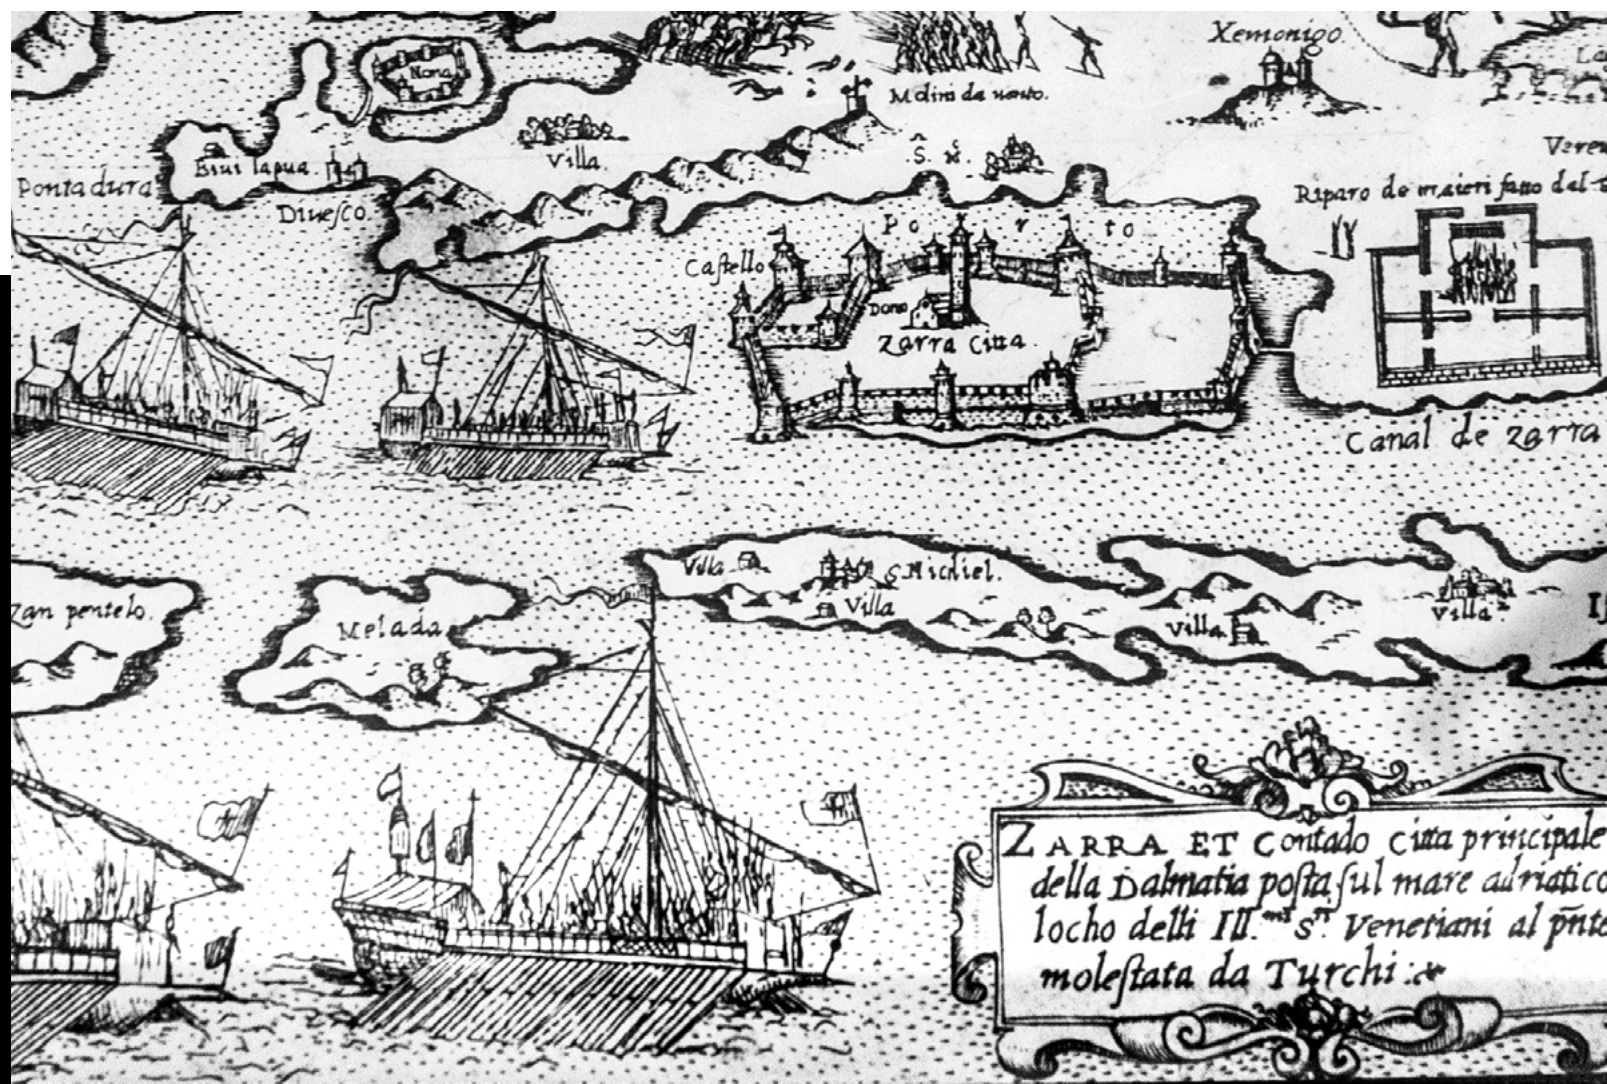 Xemonigo.
Nona
Molini da uento.
Villa.
S. M.
Pontadura
Diuesco.
Riparo de
Porto
Castello
Domo
Zarra Citta
Canal de Zarra
Villa
S Michiel.
Villa
Villa
Villa
pentelo.
Melada
ZARRA ET Contado Citta principale
della Dalmatia posta sul mare adriatico
locho delli Ill.mi S.ri Venetiani al p̄nte
molestata da Turchi